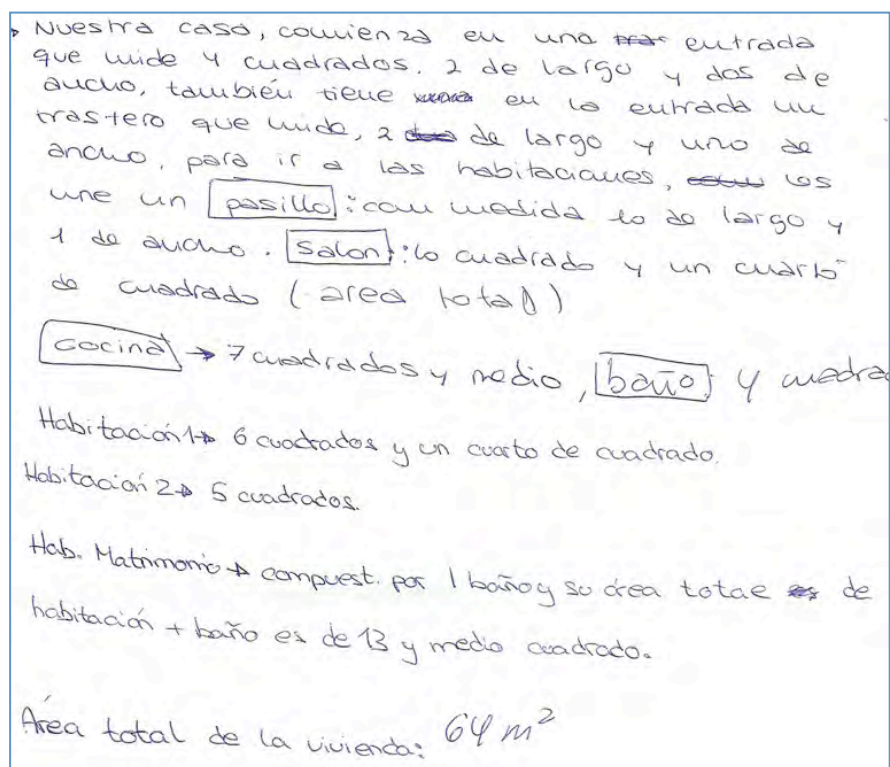 Nuestra casa, comienza en una entrada
que mide 4 cuadrados. 2 de largo y dos de
ancho, también tiene en la entrada un
trastero que mide, 2 de largo y uno de
ancho, para ir a las habitaciones, los
une un pasillo: con medida 10 de largo y
1 de ancho. Salon: 10 cuadrado y un cuarto
de cuadrado (area total)
cocina → 7 cuadrados y medio, baño: 4 cuadra
Habitación 1→ 6 cuadrados y un cuarto de cuadrado.
Habitación 2→ 5 cuadrados.
Hab. Matrimonio → compuest. por 1 baño y su área total de
habitación + baño es de 13 y medio cuadrado.
Área total de la vivienda: 64 m²